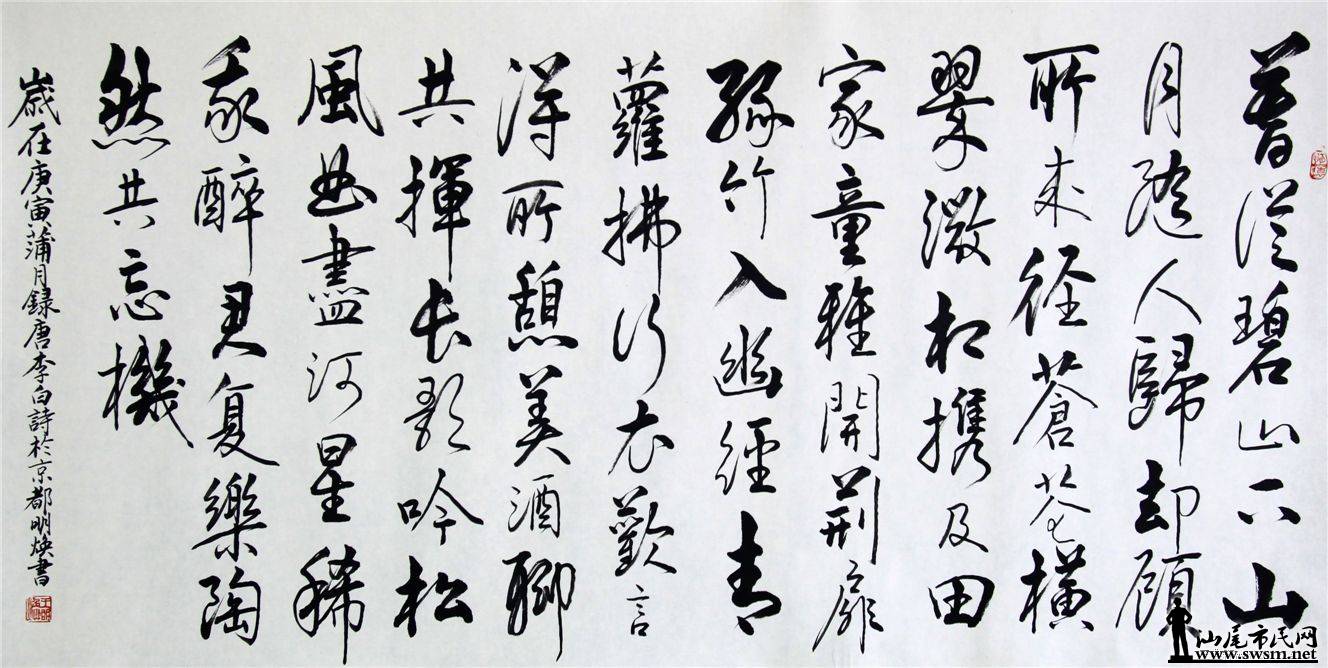 暮從碧山下山
月隨人歸却顧
所来徑蒼蒼橫
翠微相携及田
家童稚開荊扉
綠竹入幽經青
蘿拂行衣歡言
得所憩美酒聊
共揮長歌吟松
風曲盡河星稀
我醉君复樂陶
然共忘機
歲在庚寅蒲月録唐李白詩於京都明煥書
汕尾市民网
www.swsm.net